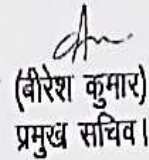 (बीरेश कुमार)
प्रमुख सचिव।